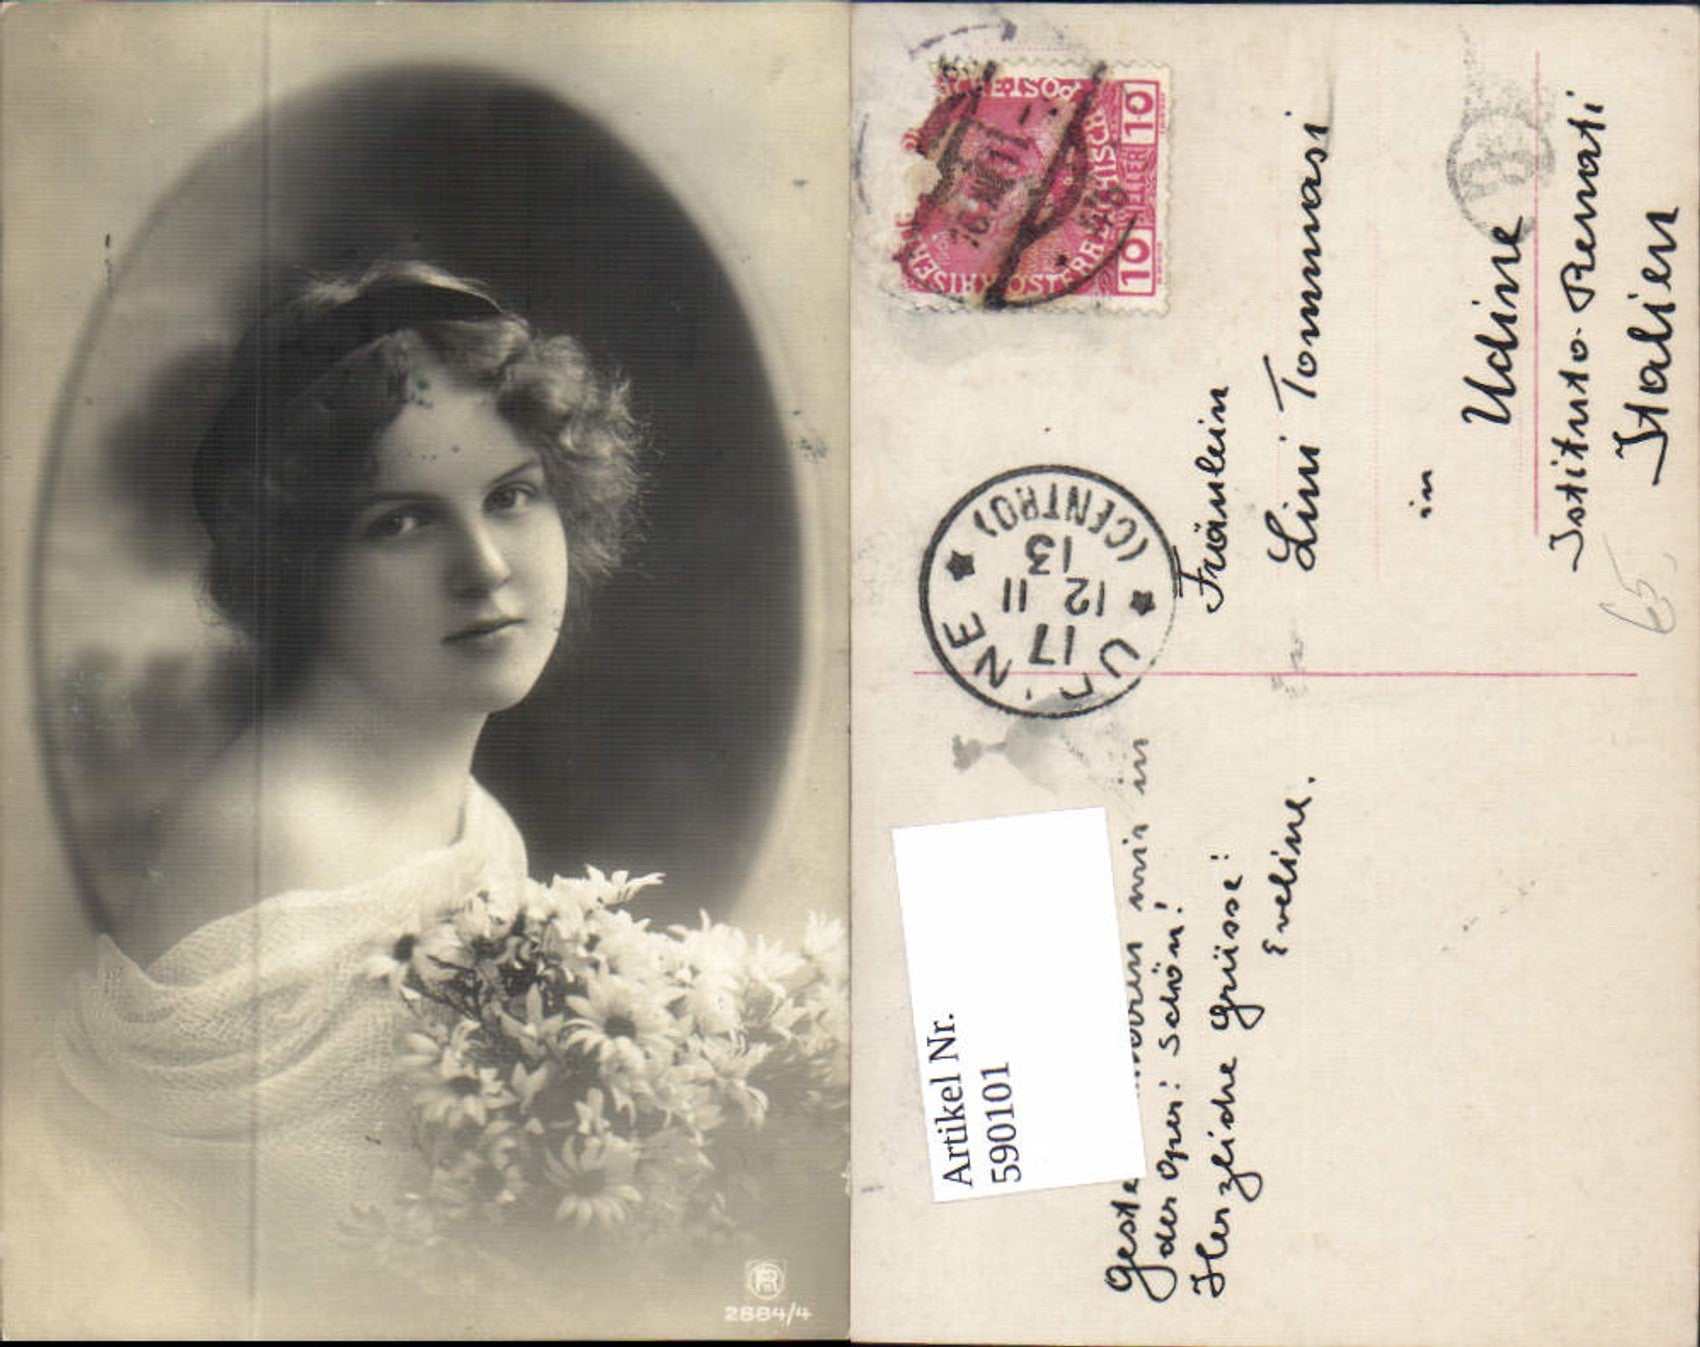 2884/4
KAISERLICHE KÖNIGL. ÖSTERREICHISCHE POST
10 HELLER 10
UDINE
(CENTRO)
17
12 11
13
Fräulein
Lini Tommasi
in
Udine
Istituto Renati
Italien
65
Artikel Nr.
590101
Geste wir in
der Oper! Schön!
Herzliche Grüsse!
Eveline.